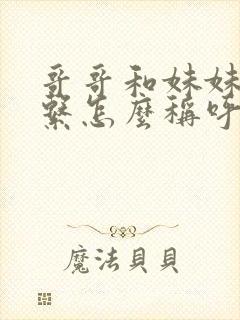 哥哥和妹妹
繫怎麼稱呼
魔法貝貝